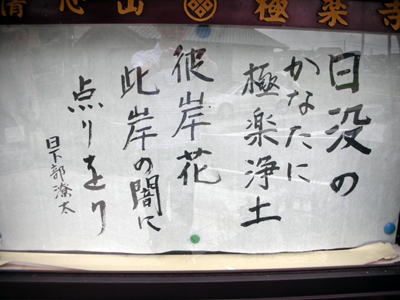 清心山 極楽寺
日没の
かなたに
極楽浄土
彼岸花
此岸の闇に
点りをり
日下部滾太